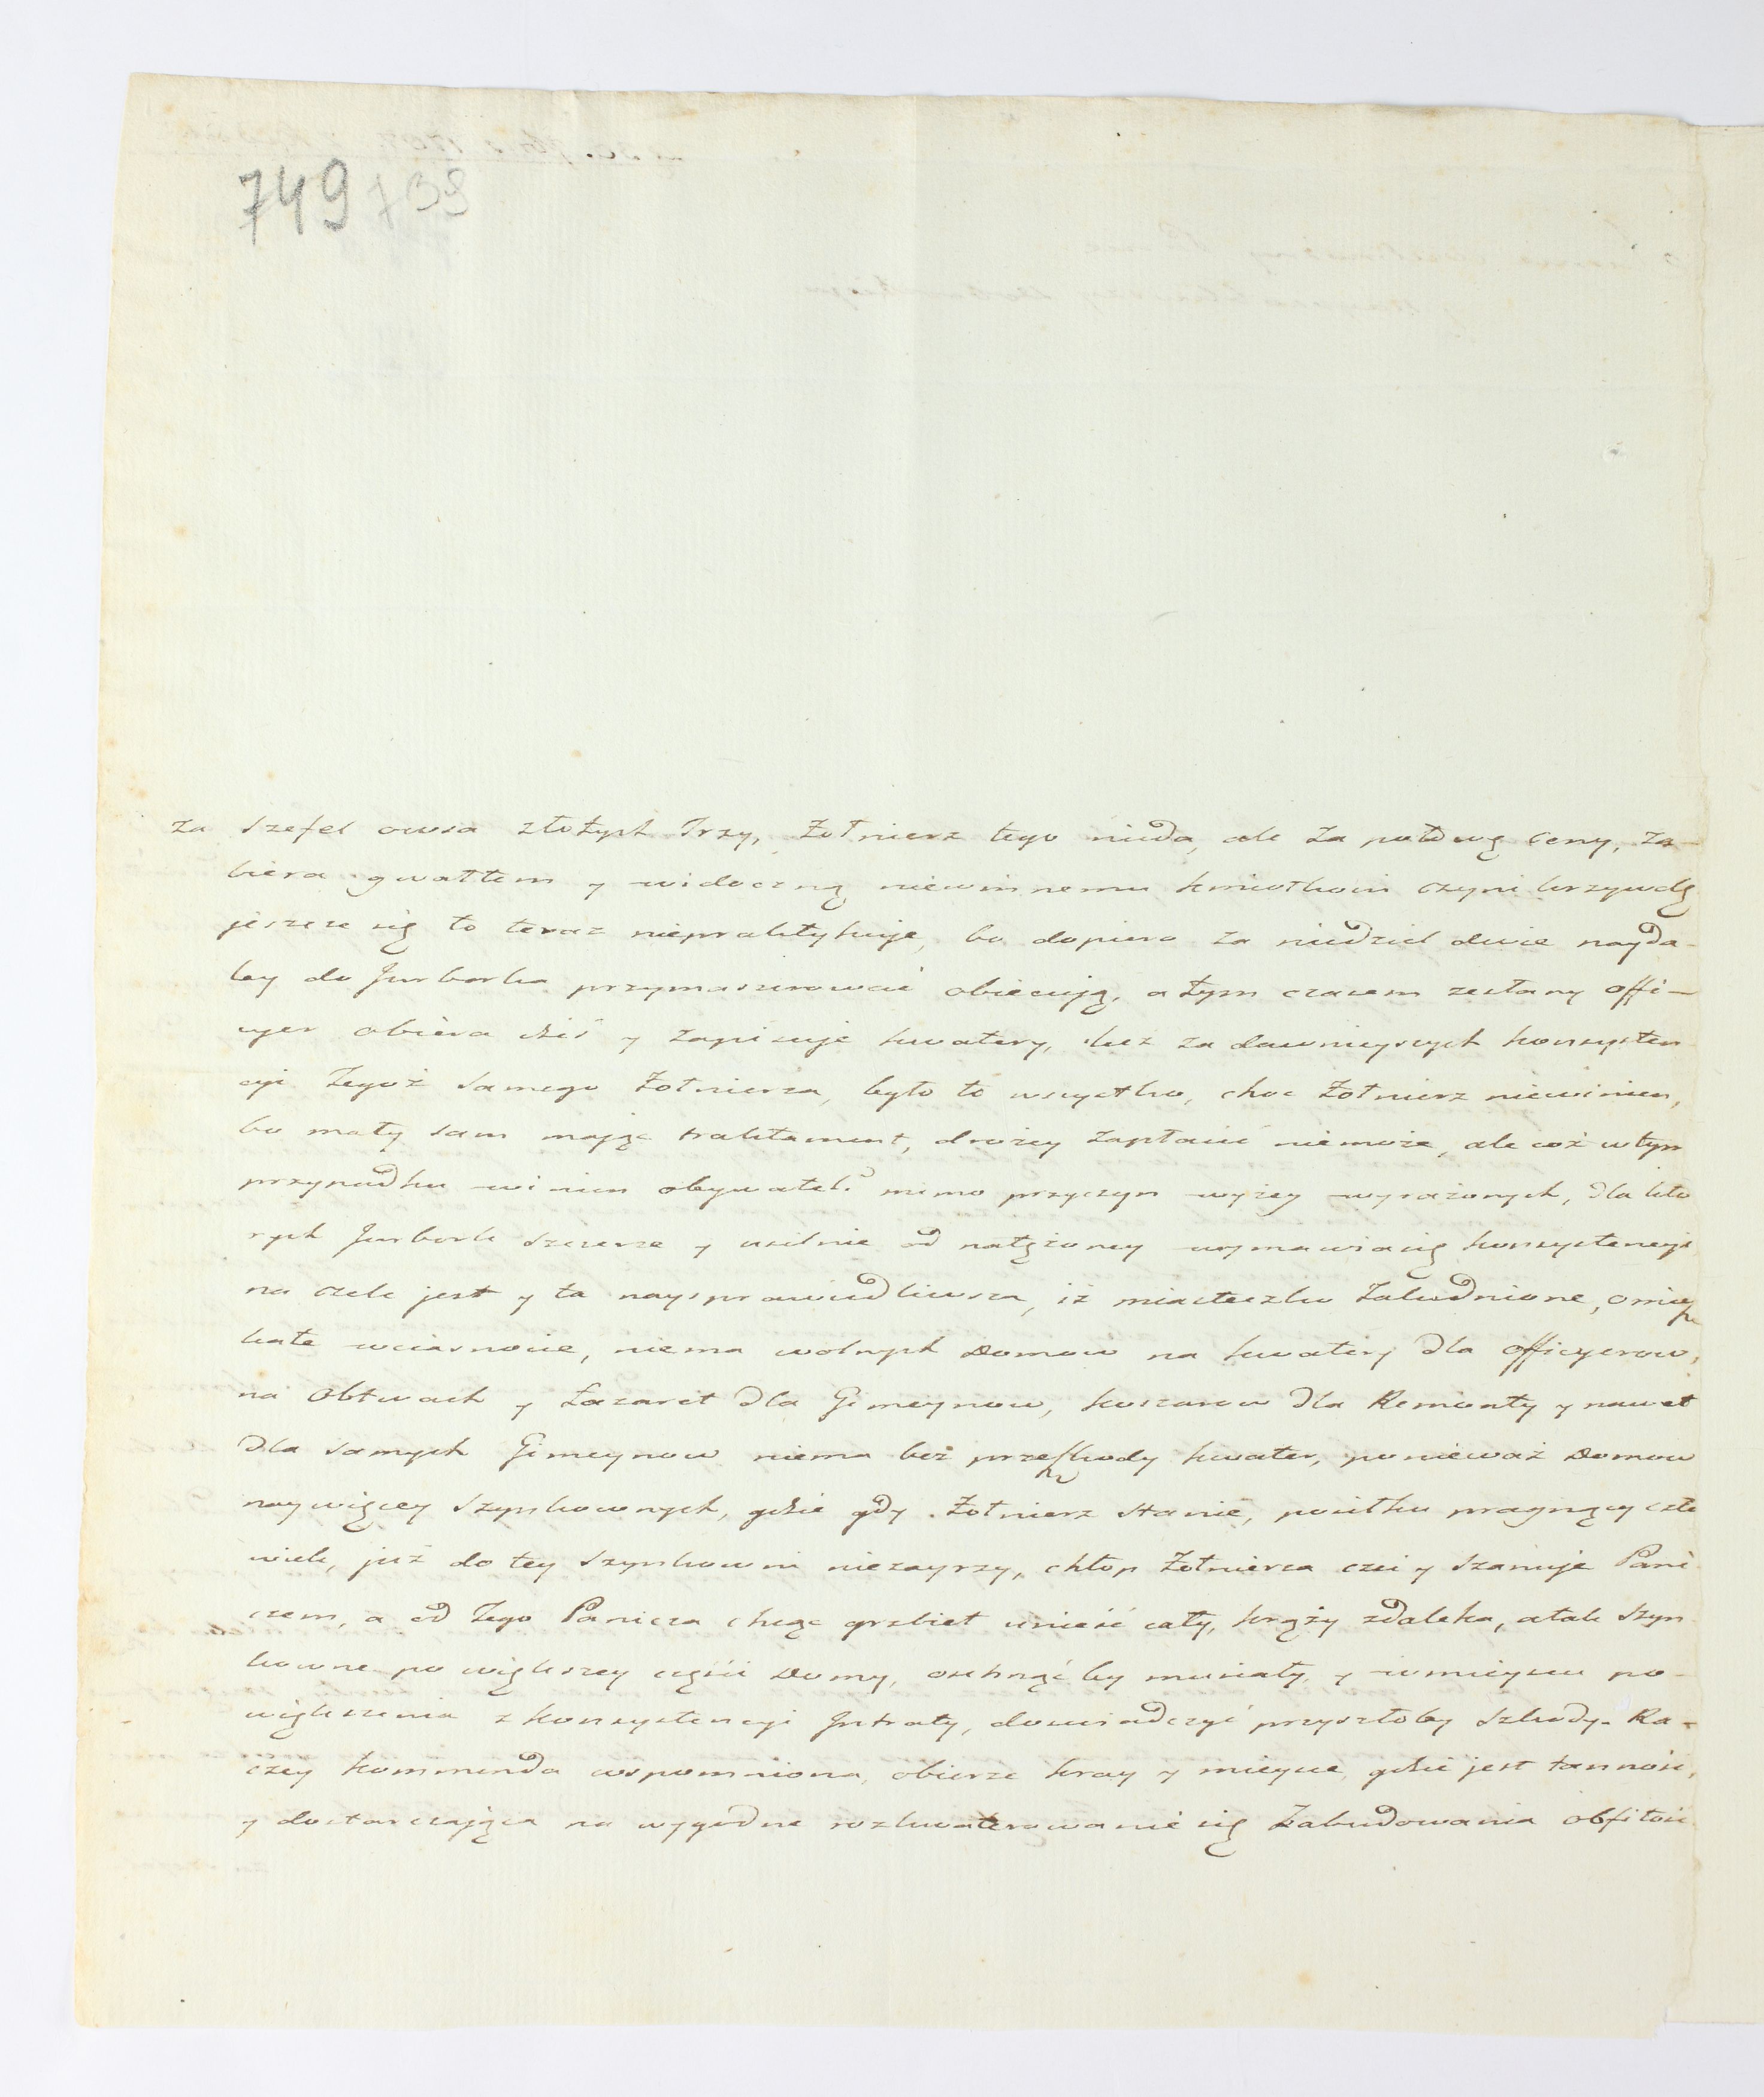 749 739
za Szefel owsa złotych Trzy, Żołnierz tego nieda, ale za połowę ceny, za-
biera gwałtem y widoczną niewinnemu kmiotkowi czyni krzywdę
jeszcze się to teraz niepraktykuje, bo dopiero za niedziel dwie nayda-
ley do Jurborka przymaszerować obiecują, a tym czasem zesłany offi-
cyer obiera dziś y zapisuje kwatery, lecz za dawnieyszych konsysten-
cyi Tegoż samego Żołnierza, było to wszystko, choc Żołnierz niewinien,
bo mały sam mając traktament, drożey zapłacić niemoże, ale coż w tym
przypadku winien obywatel? mimo przyczyn wyżey wyrażonych, dla kto
rych Jurbork szczerze y usilnie od natężoney wymawia się konsystencyi
na czele jest y ta naysprawiedliwsza, iż miasteczko zaludnione, omiesz
kałe w ciasnocie, niema wolnych Domow na kwatery dla officyerow,
na Obtwach y Łazaret dla Gimeynow, koszarow dla Remonty y nawet
dla samych Gimeynow niema bez przeszkody kwater, ponieważ Domow
naywięcey Szynkownych, gdzie gdy Żołnierz stanie, posiłku pragnący czło
wiek, już do tey Szynkowni niezayrzy, chłop Żołnierza czci y szanuje Pani
czem, a od Tego Panicza chcąc grzbiet unieść cały, krąży zdaleka, a tak Szyn
kowne po większey części Domy, oschnąć by musiały, y w mieyscu po-
większenia z konsystencyi Intraty, doswiadczyć przyszłoby szkody. Ra-
czey kommenda wspomniona, obierze kray y mieysce, gdzie jest tanność,
y dostarczająca na wygodne rozkwaterowanie się zabudowania obfitość